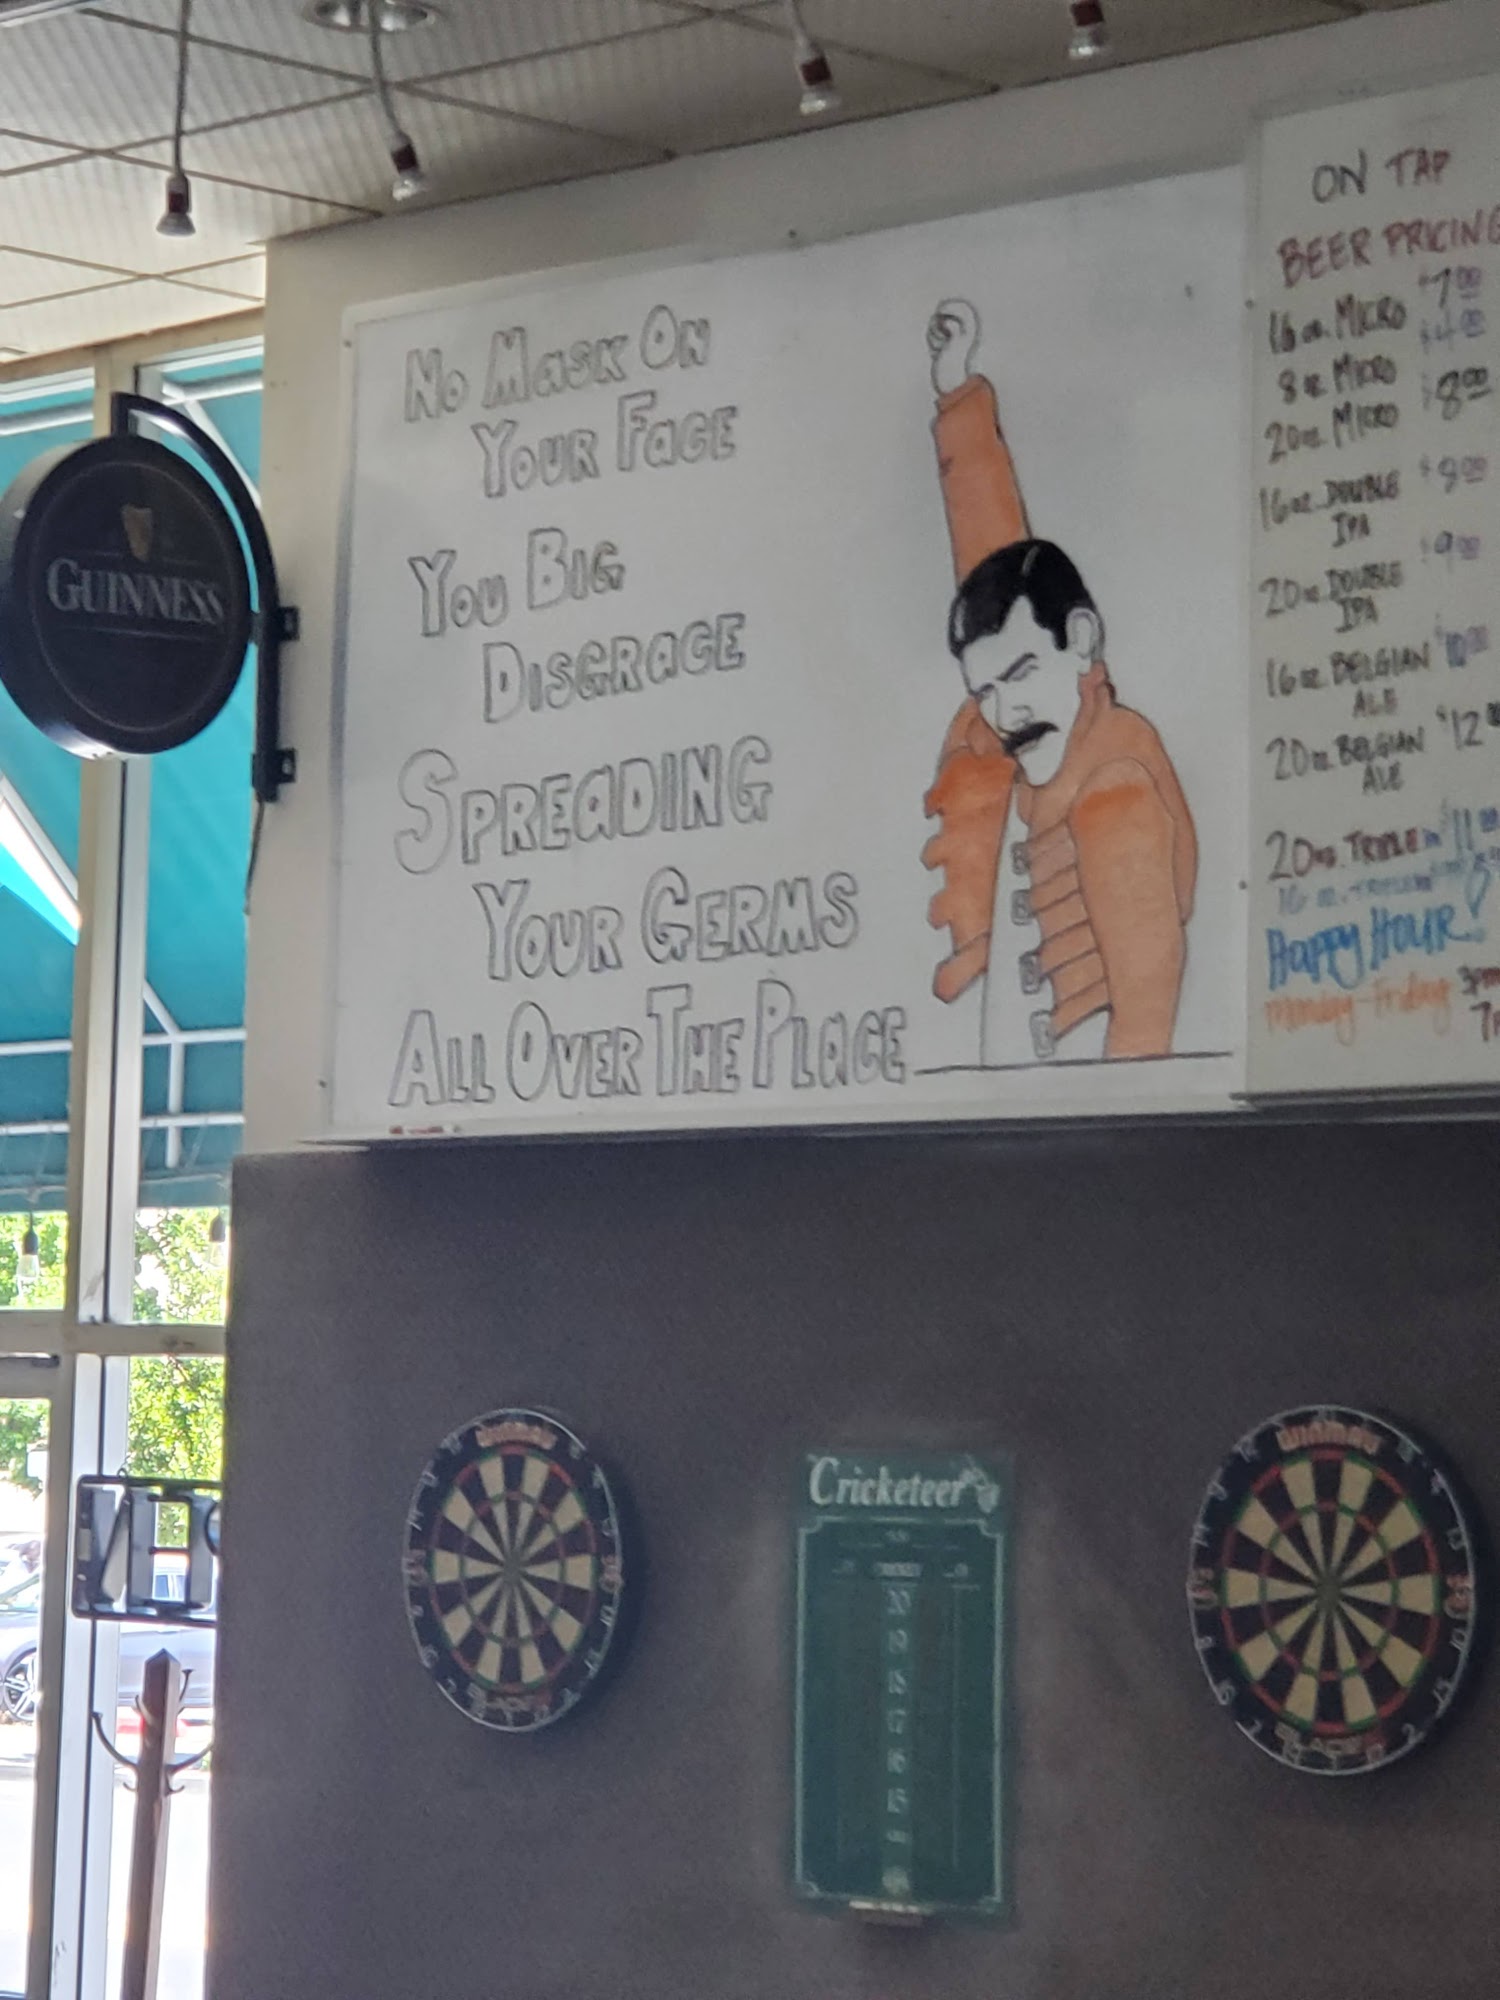 No Mask On
Your Face
You Big
Disgrace
Spreading
Your Germs
All Over The Place
GUINNESS
ON TAP
BEER PRICING
16 oz. MICRO $7.00
8 oz MICRO $4.00
20oz. MICRO $8.00
16oz. DOUBLE IPA $8.00
20oz. DOUBLE IPA $9.00
16oz BELGIAN ALE $10.00
20oz BELGIAN ALE $12.00
20oz. TRIPLE $11.00
Happy Hour!
Monday-Friday 3pm
Cricketeer
20
19
18
17
16
15
WINMAU
WINMAU